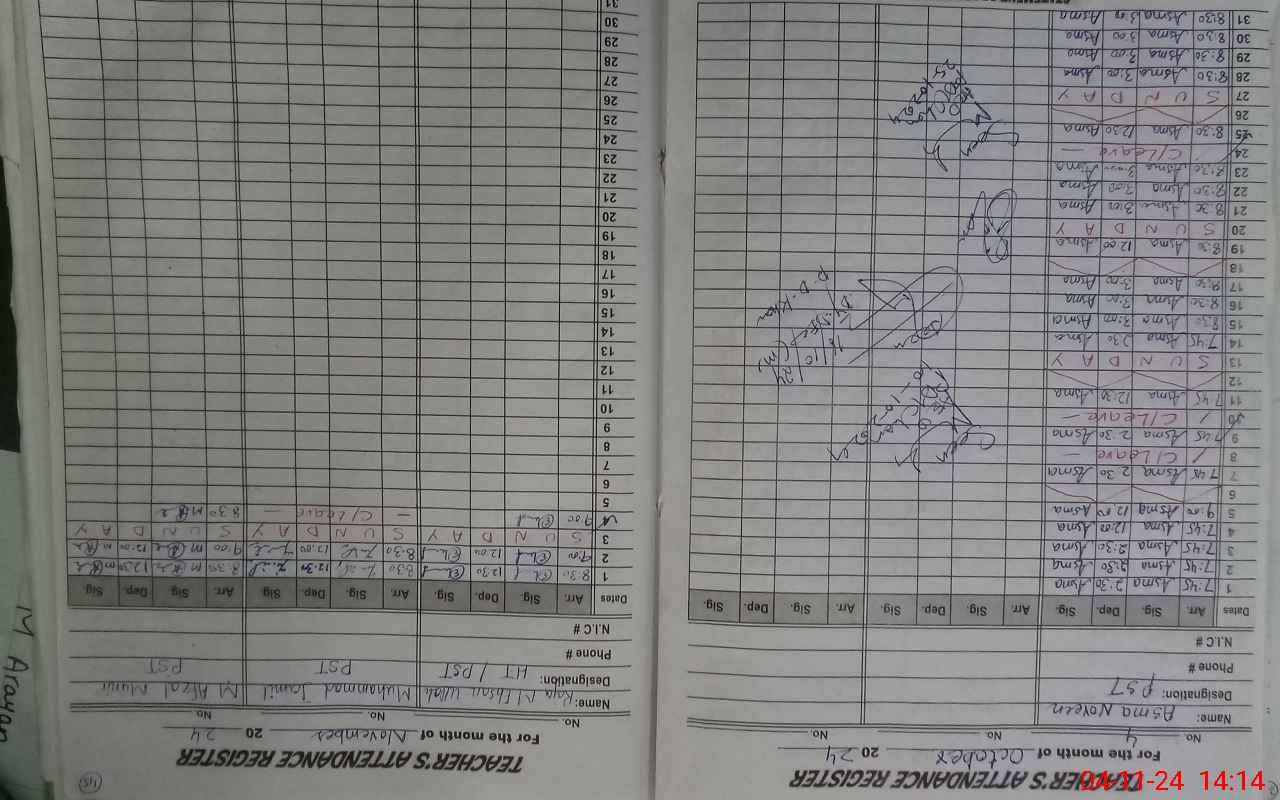 TEACHER'S ATTENDANCE REGISTER
For the month of October 2024
No. 4 No. No.
Name: Asma Noreen
Designation: PST
Phone #
N.I.C #
Dates Arr. Sig. Dep. Sig. Arr. Sig. Dep. Sig. Arr. Sig. Dep. Sig.
1 7:45 Asma 2:30 Asma
2 7:45 Asma 2:30 Asma
3 7:45 Asma 2:30 Asma
4 7:45 Asma 12:00 Asma
5 9:00 Asma 12:00 Asma
6
7 7:45 Asma 2:30 Asma
8 / C/Leave —
9 7:45 Asma 2:30 Asma
10 / C/Leave —
11 7:45 Asma 12:30 Asma
12
13 S U N D A Y
14 7:45 Asma 2:30 Asma
15 8:30 Asma 3:00 Asma
16 8:30 Asma 3:00 Asma
17 8:30 Asma 3:00 Asma
18
19 8:30 Asma 12:00 Asma
20 S U N D A Y
21 8:30 Asma 3:00 Asma
22 8:30 Asma 3:00 Asma
23 8:30 Asma 3:00 Asma
24 C/Leave —
25 8:30 Asma 12:30 Asma
26
27 S U N D A Y
28 8:30 Asma 3:00 Asma
29 8:30 Asma 3:00 Asma
30 8:30 Asma 3:00 Asma
31 8:30 Asma 3:00 Asma
Seen
Seen
16/10/24
D.D.Khan
Seen
TEACHER'S ATTENDANCE REGISTER
145
For the month of November 2024
No. No. No.
Name: Raja M Ehsan Ullah Muhammad Jamil M Afzal Munir
Designation: HT / PST PST PST
Phone #
N.I.C #
Dates Arr. Sig. Dep. Sig. Arr. Sig. Dep. Sig. Arr. Sig. Dep. Sig.
1 8:30 12:30 8:30 12:30 8:30 12:30
2 9:00 12:00 8:30 12:00 9:00 12:00
3 S U N D A Y S U N D A Y S U N D A Y
4 9:00 — C/Leave — 8:30
5
6
7
8
9
10
11
12
13
14
15
16
17
18
19
20
21
22
23
24
25
26
27
28
29
30
31
M Arayan
04-11-24 14:14